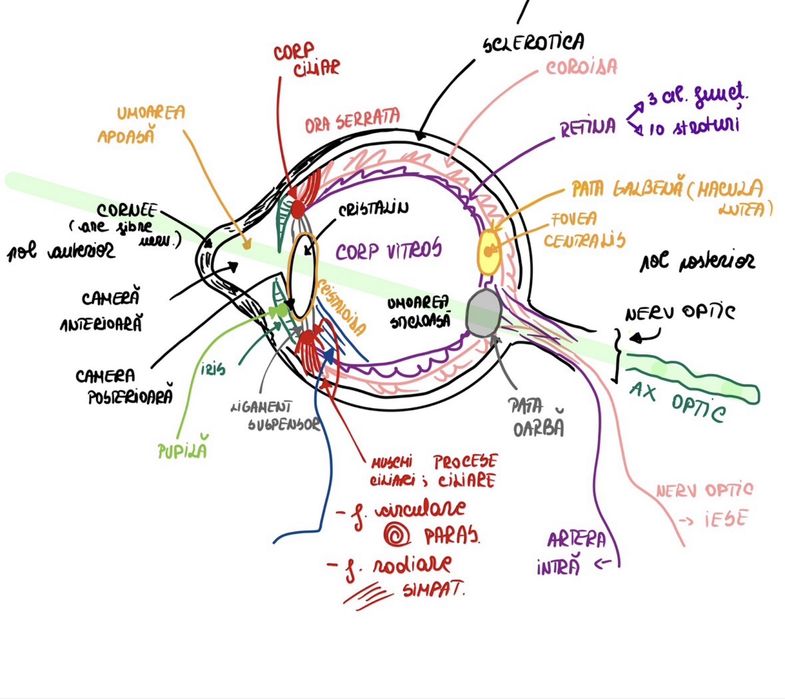 SCLEROTICA
CORP
CILIAR
COROIDA
3 al. funcț.
RETINA
10 straturi
UMOAREA
APOASĂ
ORA SERRATA
PATA GALBENĂ (MACULA
LUTEA)
CORNEE
(are fibre
nerv.)
pol anterior
CRISTALIN
FOVEA
CENTRALIS
CORP VITROS
pol posterior
CRISTALOIDA
CAMERĂ
ANTERIOARĂ
UMOAREA
STICLOASĂ
NERV OPTIC
CAMERA
POSTERIOARĂ
IRIS
AX OPTIC
LIGAMENT
SUSPENSOR
PATA
OARBĂ
PUPILĂ
MUSCHI PROCESE
CILIARI ; CILIARE
- f. circulare
PARAS.
- f. radiare
SIMPAT.
NERV OPTIC
→ IESE
ARTERA
INTRĂ ←